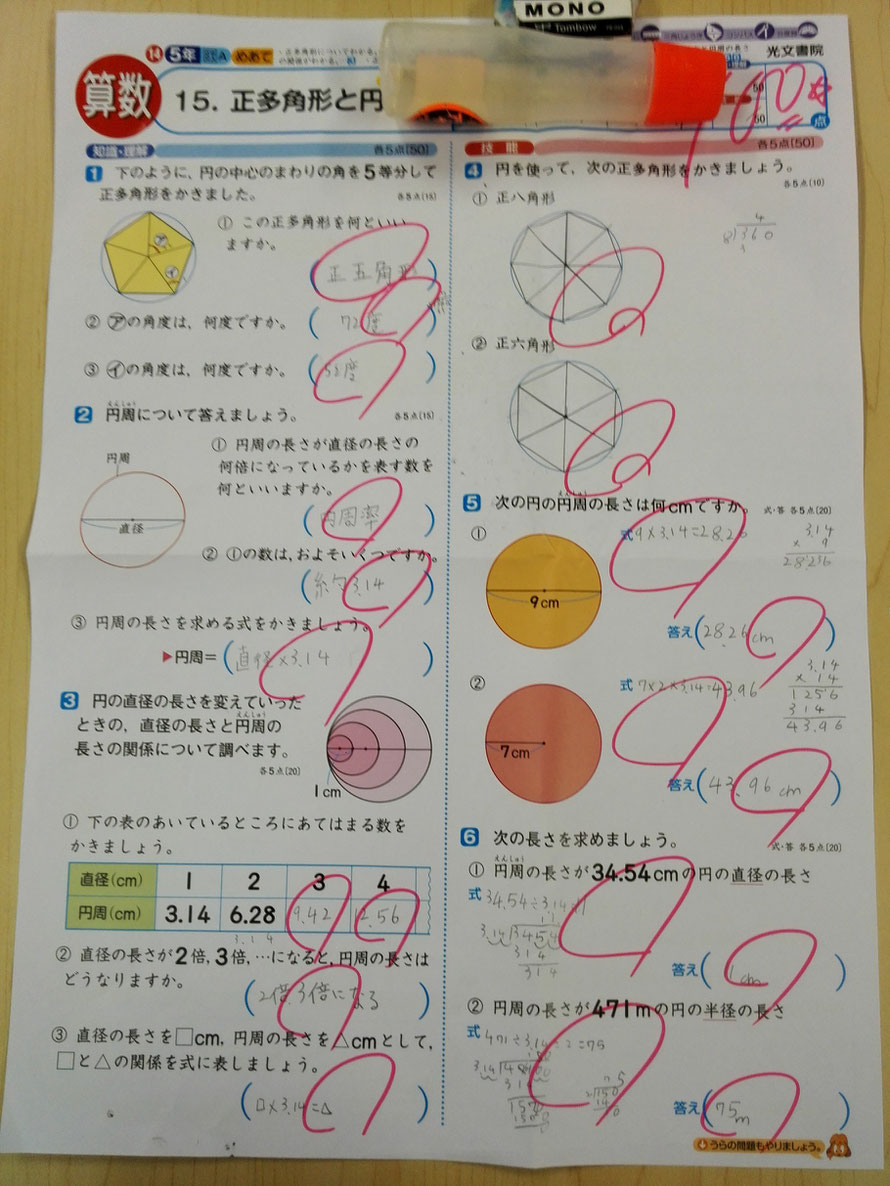 MONO
Tombow
14 5年 A めあて
光文書院
算数
15. 正多角形と円
100点
50
50
点
知識・理解 各5点[50]
1 下のように、円の中心のまわりの角を5等分して
正多角形をかきました。 各5点(15)
① この正多角形を何といい
ますか。
(正五角形)
㋐
㋑
② ㋐の角度は、何度ですか。 (72度)
③ ㋑の角度は、何度ですか。 (度)
2 円周について答えましょう。 各5点(15)
えんしゅう
円周
直径
① 円周の長さが直径の長さの
何倍になっているかを表す数を
何といいますか。
(円周率)
② ①の数は、およそいくつですか。
(約3.14)
③ 円周の長さを求める式をかきましょう。
▶円周=(直径×3.14)
3 円の直径の長さを変えていった
ときの、直径の長さと円周の
えんしゅう
長さの関係について調べます。
各5点[20]
1cm
① 下の表のあいているところにあてはまる数を
かきましょう。
直径(cm) 1 2 3 4
円周(cm) 3.14 6.28 9.42 12.56
② 直径の長さが2倍、3倍、…になると、円周の長さは
どうなりますか。
(2倍、3倍になる)
③ 直径の長さを□cm、円周の長さを△cmとして、
□と△の関係を式に表しましょう。
(□×3.14=△)
技能 各5点[50]
4 円を使って、次の正多角形をかきましょう。
各5点(10)
① 正八角形
4
8)360
② 正六角形
5 次の円の円周の長さは何cmですか。 式・答 各5点[20]
えんしゅう
①
9cm
式 9×3.14=28.26
3.14
× 9
28.26
答え(28.26cm)
②
7cm
式 7×2×3.14=43.96
3.14
×14
1256
314
43.96
答え(43.96cm)
6 次の長さを求めましょう。
式・答 各5点[20]
えんしゅう
① 円周の長さが34.54cmの円の直径の長さ
式 34.54÷3.14=11
11
3.14)3454
314
314
答え(1cm)
② 円周の長さが471mの円の半径の長さ
式 471÷3.14÷2=75
75
2)150
14
答え(75m)
うらの問題もやりましょう。